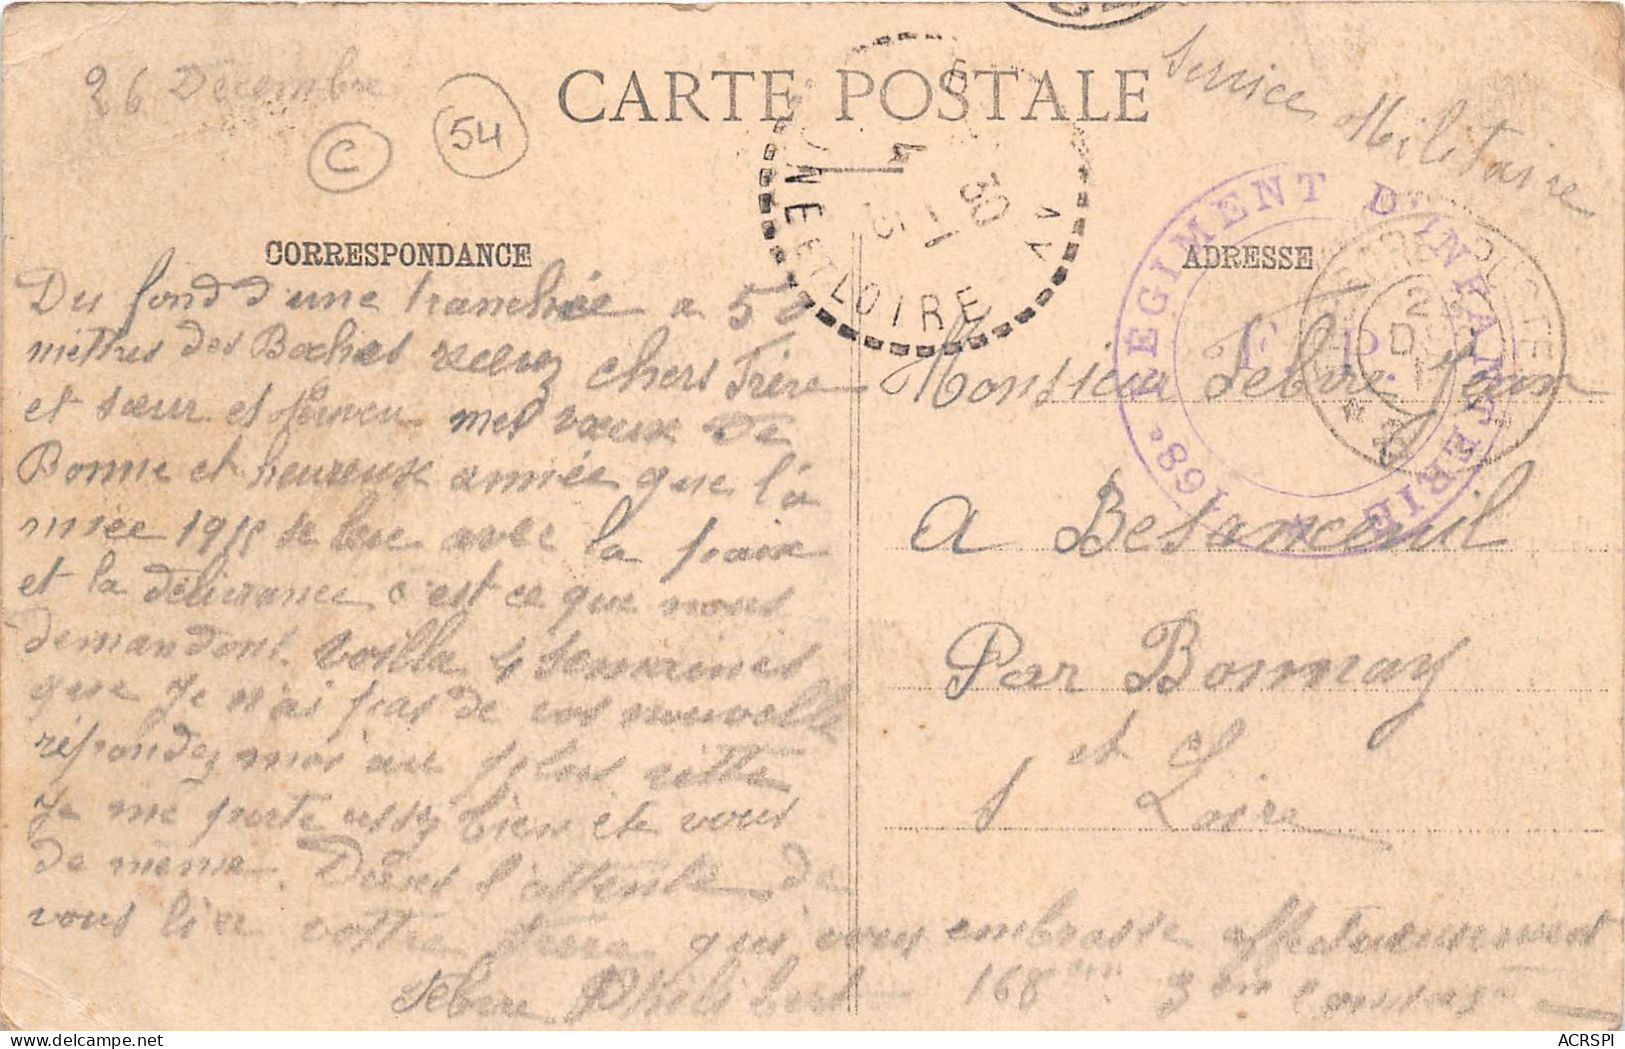 26 Decembre
C
54
CARTE POSTALE
Service Militaire
CORRESPONDANCE
ADRESSE
NE ET LOIRE
4
5 1 30
AV
168e REGIMENT D'INFANTERIE
F. P.
Du fond d'une tranchée a 50
mettres des Boches recevez chers Frère
et sœur et mes vœux De
Bonne et heureuse année que l'a
nnée 1915 se leve avec la paix
et la délivrance c'est ce que nous
demandons. voilla 4 semaines
que Je n'ai pas de vos nouvelle
répondez moi au plus vitte
Je me porte assez bien et vous
de même. Dans l'attente de
vous lire vottre frere qui vous embrasse affectueusement
Febvre Philibert 168em 3em
Monsieur Febvre Jean
a Besanceuil
Par Bonnay
S et
Loire
ACRSPI